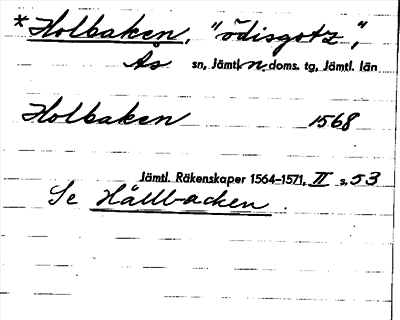 *Holbaken, "ödisgotz",
Ås sn, Jämtl. n. doms. tg, Jämtl. län
Holbaken 1568
Jämtl. Räkenskaper 1564–1571, II s. 53
Se Hållbacken.